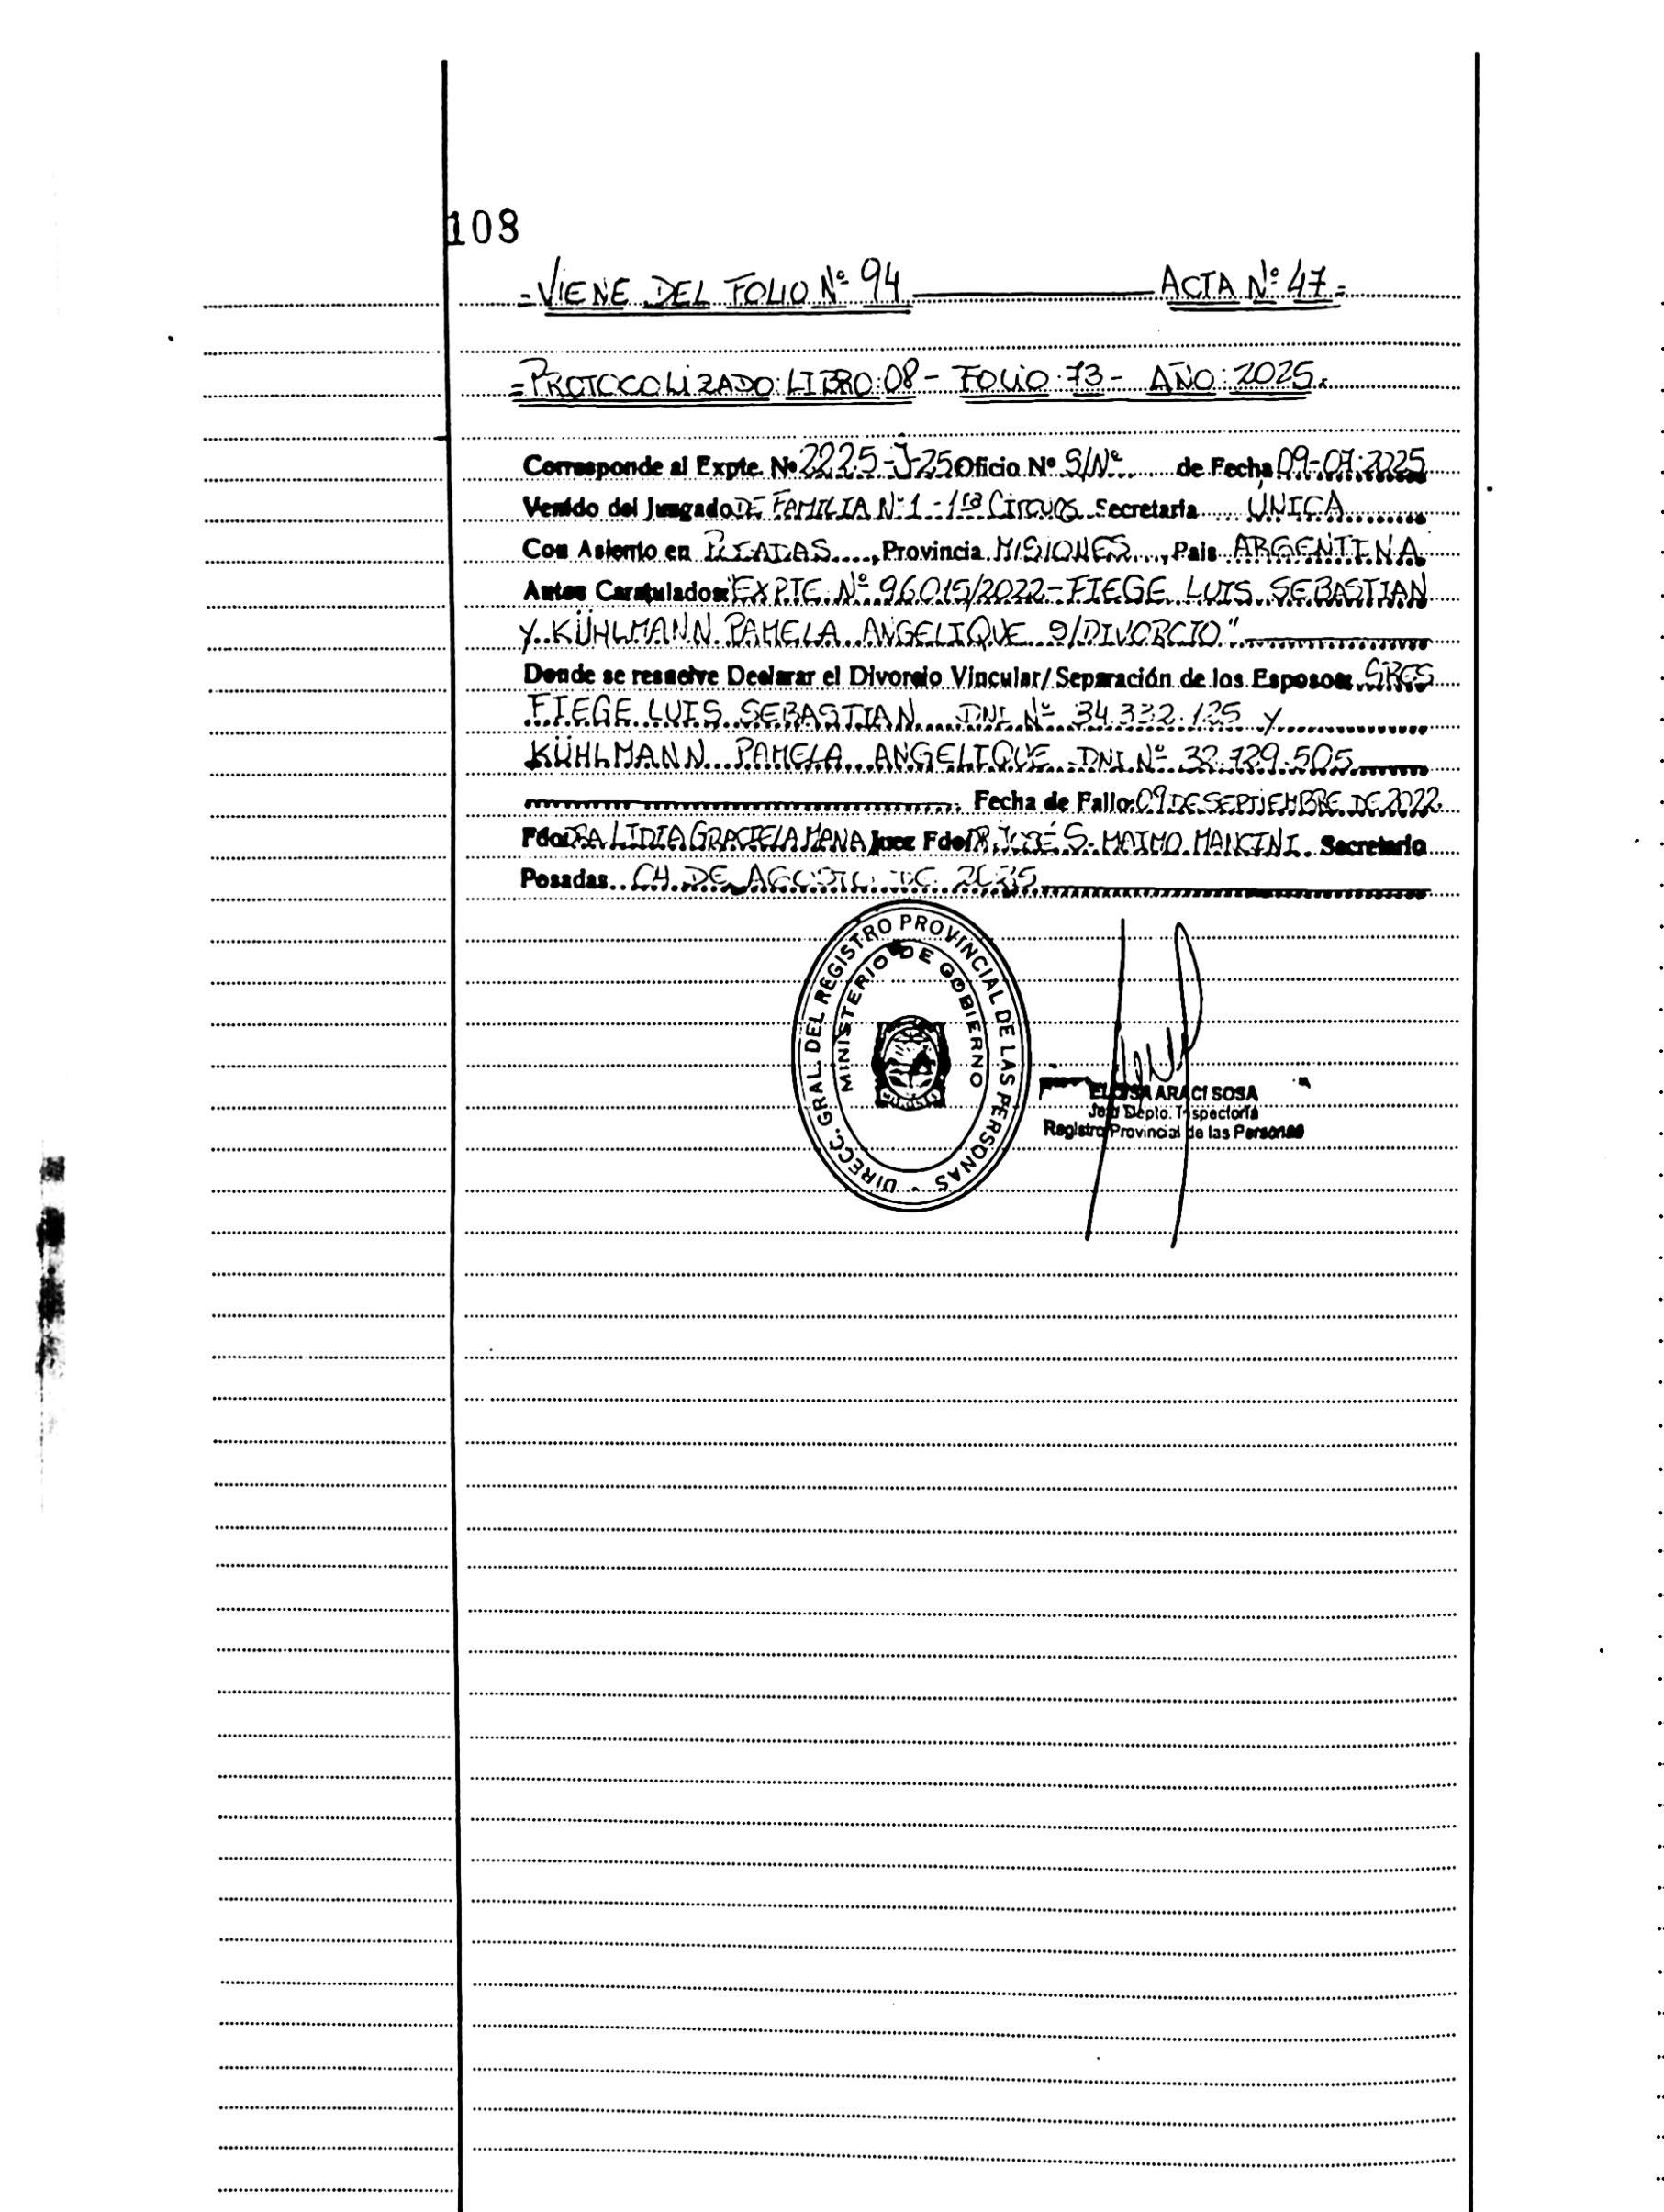 108
=VIENE DEL FOLIO Nº 94 ACTA Nº 47=
=PROTOCOLIZADO: LIBRO: 08 - FOLIO: 73 - AÑO: 2025.
Corresponde al Expte. Nº 2225-J-25 Oficio Nº S/Nº de Fecha 09-07-2025
Venido del Juzgado DE FAMILIA Nº 1 - 1ra Secretaria ÚNICA
Con Asiento en POSADAS, Provincia MISIONES, Pais ARGENTINA
Autos Caratulados: "EXPTE. Nº 96015/2022 - FIEGE LUIS SEBASTIAN
Y KÜHLMANN PAMELA ANGELIQUE S/DIVORCIO"
Donde se resuelve Declarar el Divorcio Vincular/Separación de los Esposos: SRES
FIEGE LUIS SEBASTIAN DNI Nº 34.332.125 Y
KÜHLMANN PAMELA ANGELIQUE - DNI Nº 32.729.505
Fecha de Fallo: 09 DE SEPTIEMBRE DE 2022.
Fdo: DRA LIDIA GRACIELA Juez Fdo: DR JOSÉ S. MAIMO MANCINI. Secretario
Posadas 04 DE AGOSTO DE 2025
DIRECC. GRAL. DEL REGISTRO PROVINCIAL DE LAS PERSONAS
MINISTERIO DE GOBIERNO
ELOISA ARACI SOSA
Jefa Depto. Inspectoría
Registro Provincial de las Personas